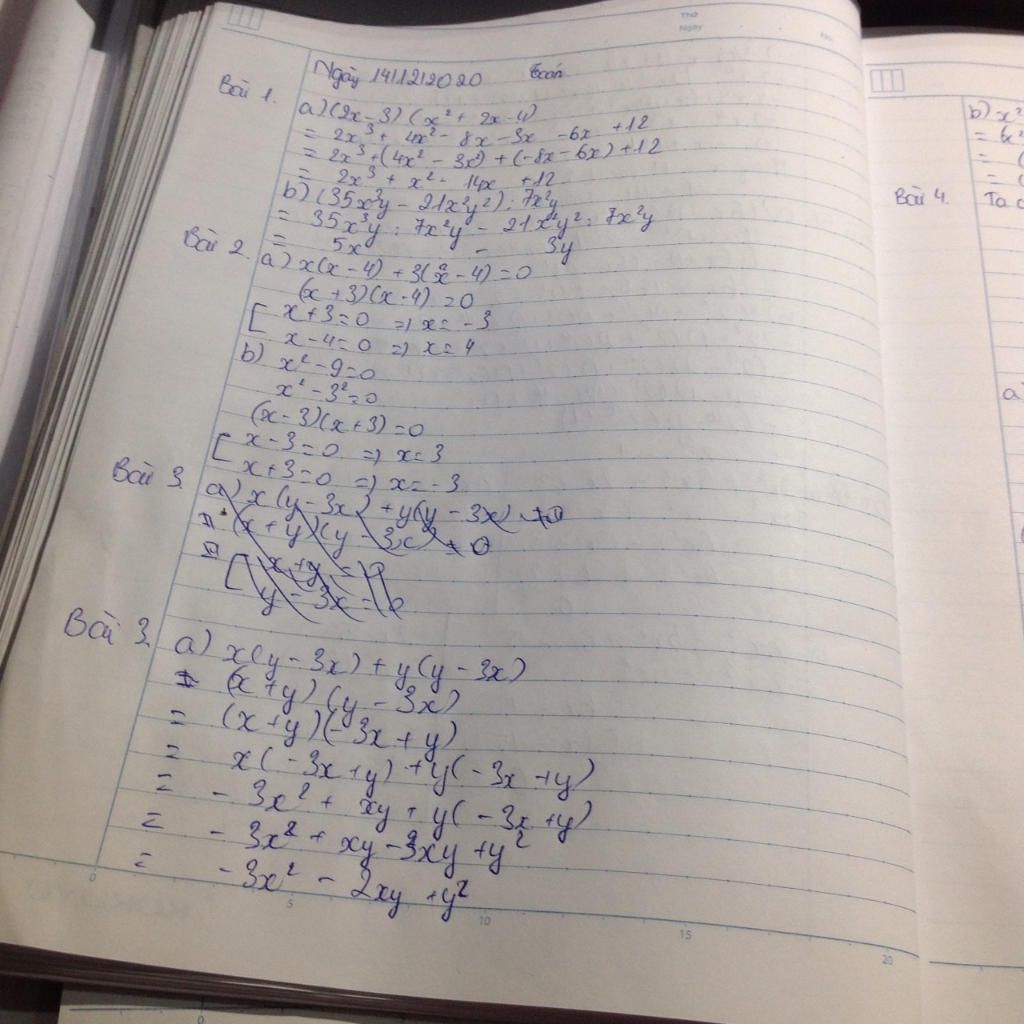 Thứ
Ngày
No.
Ngày 14/12/2020 Toán
Bài 1. a) (2x-3) (x² + 2x-4)
= 2x³ + 4x² - 8x - 3x - 6x + 12
= 2x³ + (4x² - 3x²) + (-8x - 6x) + 12
= 2x³ + x² - 14x + 12
b) (35x³y - 21x²y²) : 7x²y
= 35x³y : 7x²y - 21x²y² : 7x²y
= 5x - 3y
Bài 2. a) x(x-4) + 3(x-4) = 0
(x+3)(x-4) = 0
[ x+3=0 => x = -3
x-4=0 => x=4
b) x² - 9=0
x² - 3²=0
(x-3)(x+3) = 0
[ x-3=0 => x=3
x+3=0 => x=-3
Bài 3. a) x(y-3x) + y(y-3x) = 0
= (x+y)(y-3x) = 0
= [ x+y = 0
y-3x = 0
Bài 3. a) x(y-3x) + y(y-3x)
= (x+y) (y-3x)
= (x+y)(-3x+y)
= x(-3x+y) + y(-3x+y)
= -3x² + xy + y(-3x+y)
= -3x² + xy - 3xy + y²
= -3x² - 2xy + y²
0 5 10 15 20
b) x²
= 6x²
= (
= (
Bài 4. Ta c
a)
0